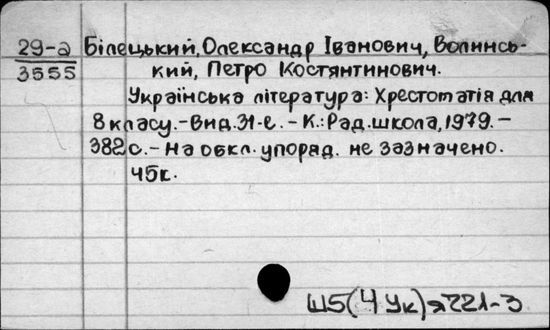 29-а Білецький, Олександр Іванович, Волинсь-
3555 кий, Петро Костянтинович.
Українська література: Хрестоматія для
8 класу. - Вид. 31-е. - К.: Рад. школа, 1979. -
382 с. - На обкл. упоряд. не зазначено.
45к.
Ш5(4Ук)я721-3